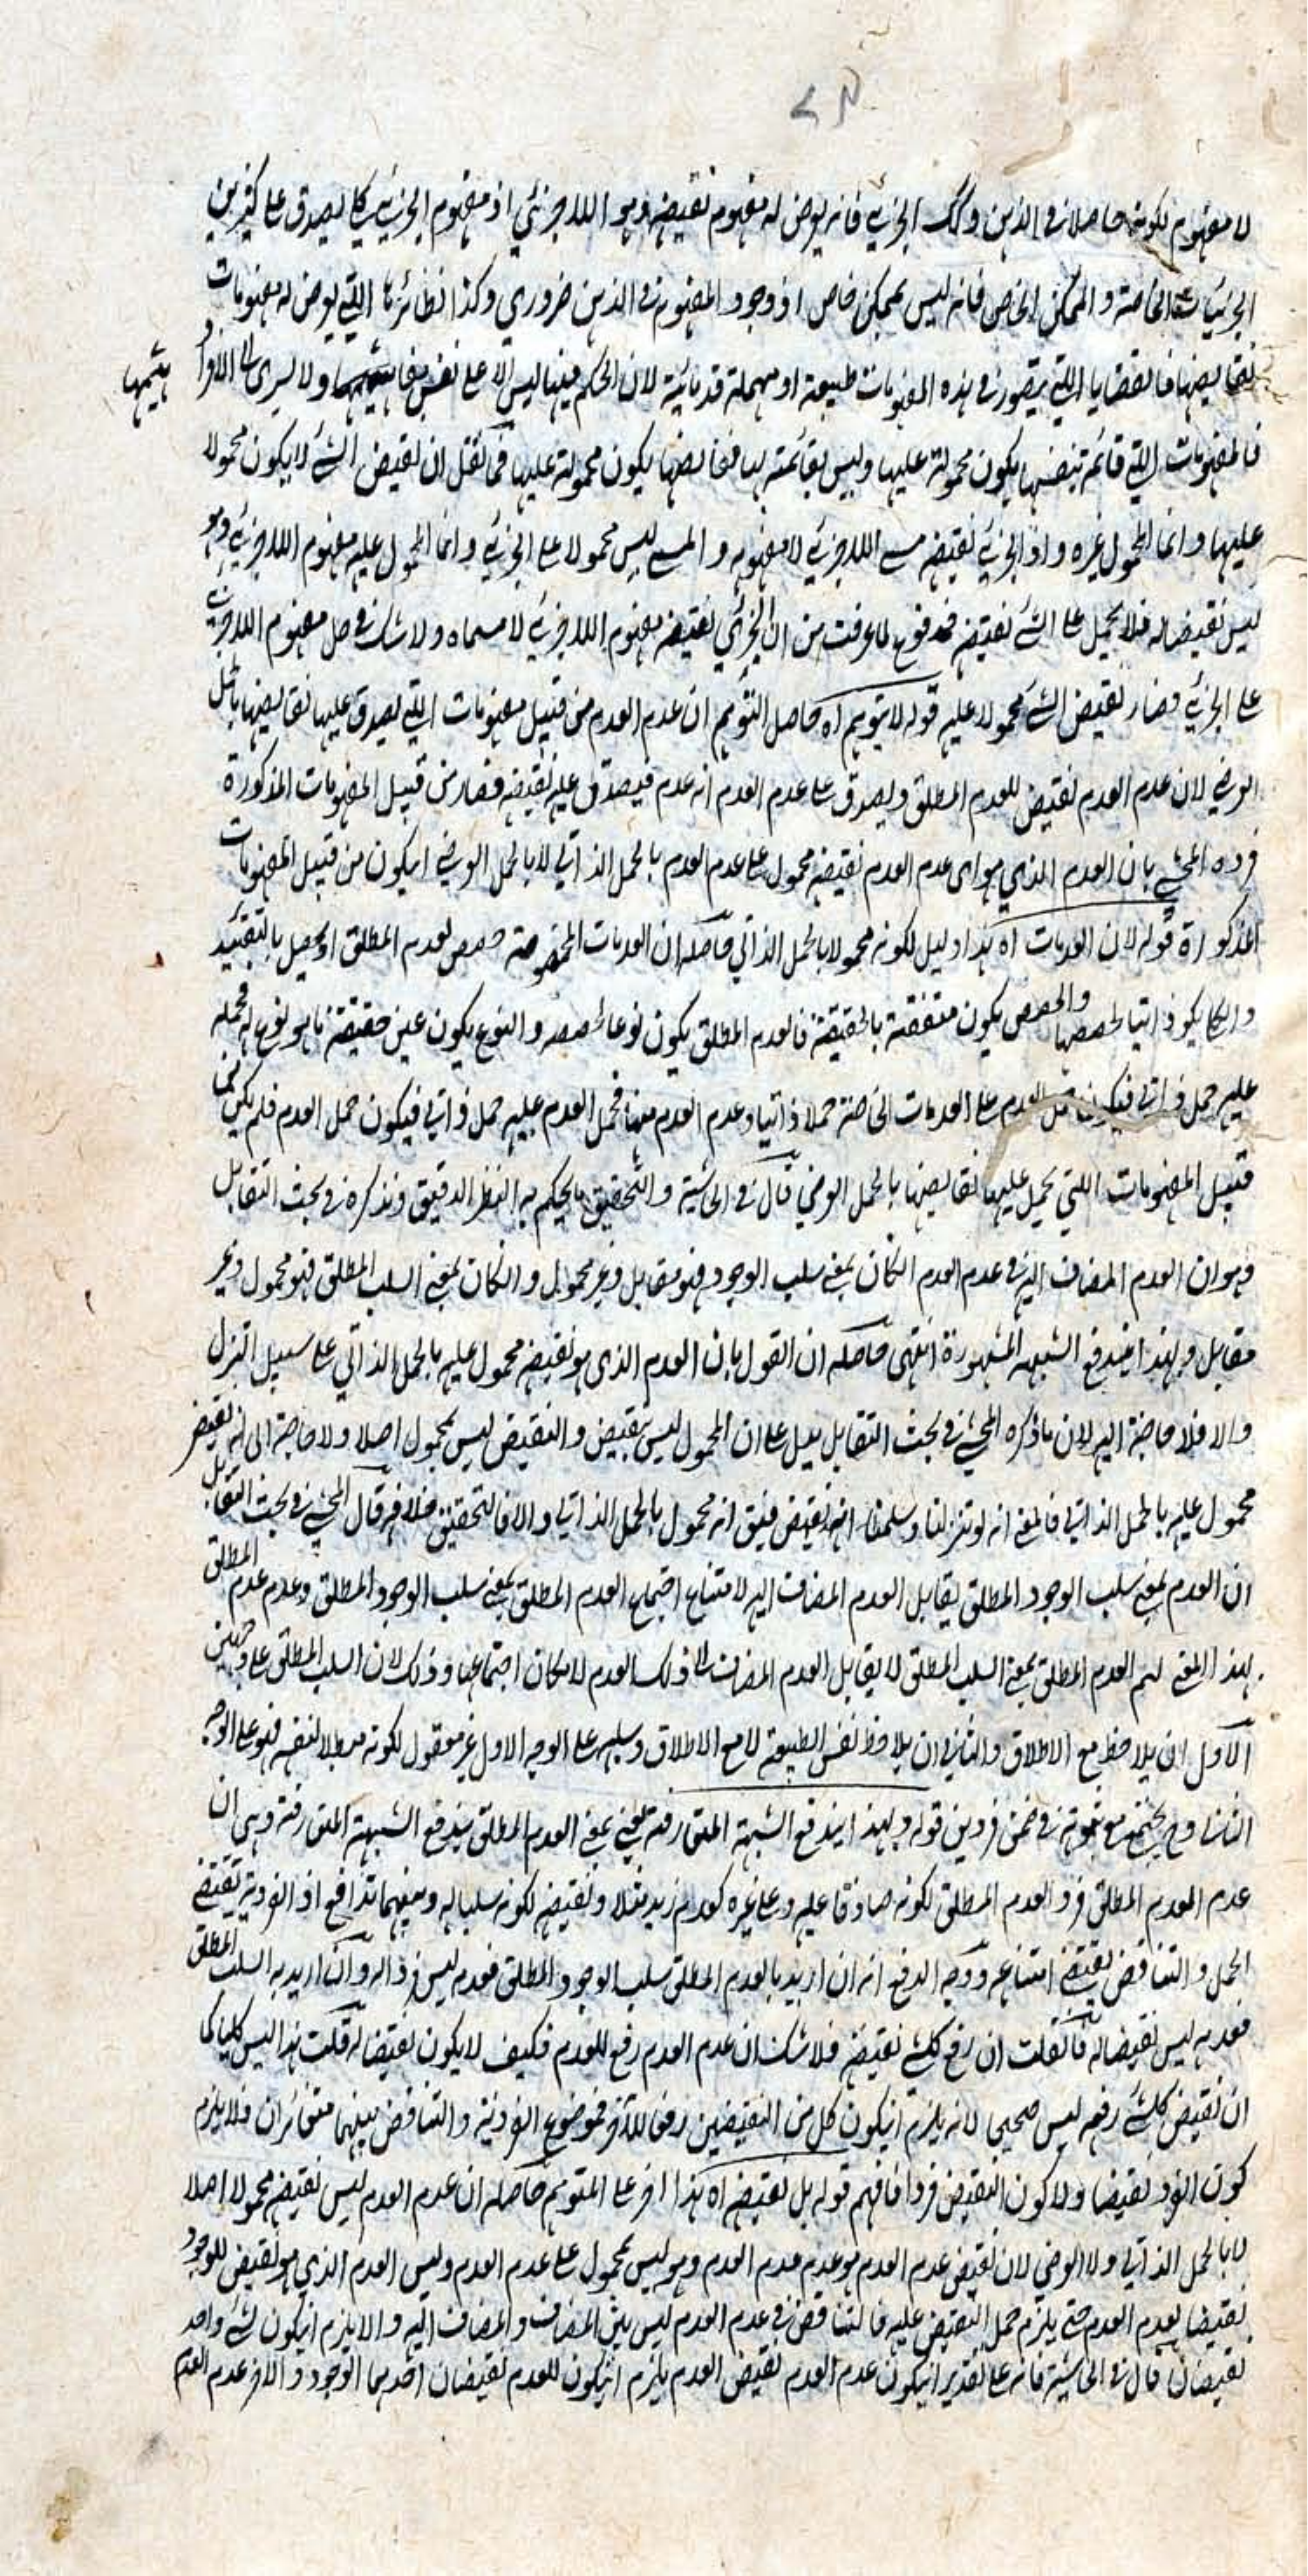 لا مفهوم لكونه حاصلا في الذهن وكذلك الجزئي فانه يعرض له مفهوم نقيضه وهو اللاجزئي اذ مفهوم الجزئي كلي يصدق على كثيرين
الجزئيات الخاصة والممكن الخاص فانه ليس بممكن خاص اذ وجود المفهوم في الذهن ضروري وكذا نظائرها اللتي يعرض له مفهومات
نقايضها فالقضايا اللتي يتصور في هذه المفهومات طبيعية او مهملة قدمائية لان الحكم فيها ليس الا على نفس ولا يسري الى الافراد
هيتها
فالمفهومات اللتي قائمة بنفسها يكون محمولة عليها وليس بقائمة بها فنقايضها يكون محمولة عليها فما نقل ان نقيض الشئ لا يكون محمولا
عليها وانما المحمول غيره واذ الجزئي نقيضه مسمى اللاجزئي لا مفهومه والمسمى ليس محمولا على الجزئي وانما المحمول عليه مفهوم اللاجزئي وهو
ليس نقيضا له فلا يحمل على الشئ نقيضه فمدفوع لما عرفت من ان الجزئي نقيضه مفهوم اللاجزئي لا مسماه ولا شك في حمل مفهوم اللاجزئي
على الجزئي فصار نقيض الشئ محمولا عليه قوله لا يتوهم اه حاصل التوهم ان عدم العدم من قبيل مفهومات اللتي يصدق عليها نقايضها بالحمل
العرضي لان عدم العدم نقيض للعدم المطلق ويصدق على عدم العدم انه عدم فيصدق عليه نقيضه فصار من قبيل المفهومات المذكورة
فرده المحشي بان العدم الذي هو اى عدم العدم نقيضه محمول على عدم العدم بالحمل الذاتي لا بالحمل العرضي ليكون من قبيل المفهومات
المذكورة قوله لان العدمات اه هذا دليل لكونه محمولا بالحمل الذاتي حاصله ان العدمات المخصوصة حصص لعدم المطلق او يحصل بالتقييد
والكلي يكون ذاتيا لحصصها والحصص يكون متفقة بالحقيقة فالعدم المطلق يكون نوعا لحصصه والنوع يكون عين حقيقة ما هو نوع له فحمله
عليه حمل ذاتي فيكون حمل العدم على العدمات الخاصة حملا ذاتيا وعدم العدم منها فحمل العدم عليه حمل ذاتي فيكون حمل العدم فلم يكن من
قبيل المفهومات اللتي يحمل عليها نقايضها بالحمل العرضي قال في الحاشية والتحقيق ما يحكم به النظر الدقيق ونذكره في بحث التقابل
وهو ان العدم المضاف اليه في عدم العدم ان كان بمعنى سلب الوجود فهو مقابل وغير محمول وان كان بمعنى السلب المطلق فهو محمول وغير
مقابل ولهذا يندفع الشبهة المشهورة انتهى حاصله ان القول بان العدم الذي هو نقيضه محمول عليه بالحمل الذاتي على سبيل التنزل
والا فلا حاجة اليه لان ما ذكره المحشي في بحث التقابل يدل على ان المحمول ليس بنقيض والنقيض ليس بمحمول اصلا ولا حاجة الى انه نقيض
محمول عليه بالحمل الذاتي فالمعنى انه لو تنزلنا وسلمنا انه نقيض فيق انه محمول بالحمل الذاتي والا فالتحقيق خلافه قال المحشي في بحث التقابل
ان العدم بمعنى سلب الوجود المطلق يقابل العدم المضاف اليه لامتناع اجتماع العدم المطلق بمعنى سلب الوجود المطلق وعدم عدم المطلق
بهذا المعنى لهم العدم المطلق بمعنى السلب المطلق لا يقابل العدم المضاف الى ذلك العدم لامكان اجتماعها وذلك لان السلب المطلق على وجهين
الاول ان يلاحظ مع الاطلاق والثاني ان يلاحظ نفس الطبيعة لا مع الاطلاق وسلبه على الوجه الاول غير معقول لكونه مبطلا لنفسه فهو على الوجه
الثاني وح يجتمع مع ثبوته في ضمن فرد من قوله ولهذا يندفع الشبهة المتعارفة يعني بمعنى العدم المطلق يندفع الشبهة المتعارفة وهي ان
عدم العدم المطلق فرد العدم المطلق لكونه صادقا عليه وعلى غيره كعدم زيد مثلا ونقيضه لكونه سلبا له وبينهما تدافع اذ الفردية يقتضي
الحمل والتناقض يقتضي امتناعه ووجه الدفع انه ان اريد بالعدم المطلق سلب الوجود المطلق فعدمه ليس فردا له وان اريد به السلب المطلق
فعدمه ليس نقيضا له فان قلت ان رفع كل شئ نقيضه فلا شك ان عدم العدم رفع للعدم فكيف لا يكون نقيضا له قلت هذا ليس كليا كما
ان نقيض كل شئ رفعه ليس صحيحا لانه يلزم ان يكون كل من النقيضين رفعا للآخر فموضوع الفردية والتناقض بينهما متغائران فلا يلزم
كون الفرد نقيضا ولا كون النقيض فردا فافهم قوله بل نقيضه اه هذا اخر على المتوهم حاصله ان عدم العدم ليس نقيضه محمولا اصلا
لا بالحمل الذاتي ولا العرضي لان نقيض عدم العدم هو عدم عدم العدم وهو ليس بمحمول على عدم العدم وليس العدم الذي هو نقيض للوجود
نقيضا لعدم العدم حتى يلزم حمل النقيض عليه فالتناقض في عدم العدم ليس بين المضاف والمضاف اليه والا يلزم ان يكون لشئ واحد
نقيضان قال في الحاشية فانه على تقدير ان يكون عدم العدم نقيض العدم يلزم ان يكون للعدم نقيضان احدهما الوجود والاخر عدم العدم